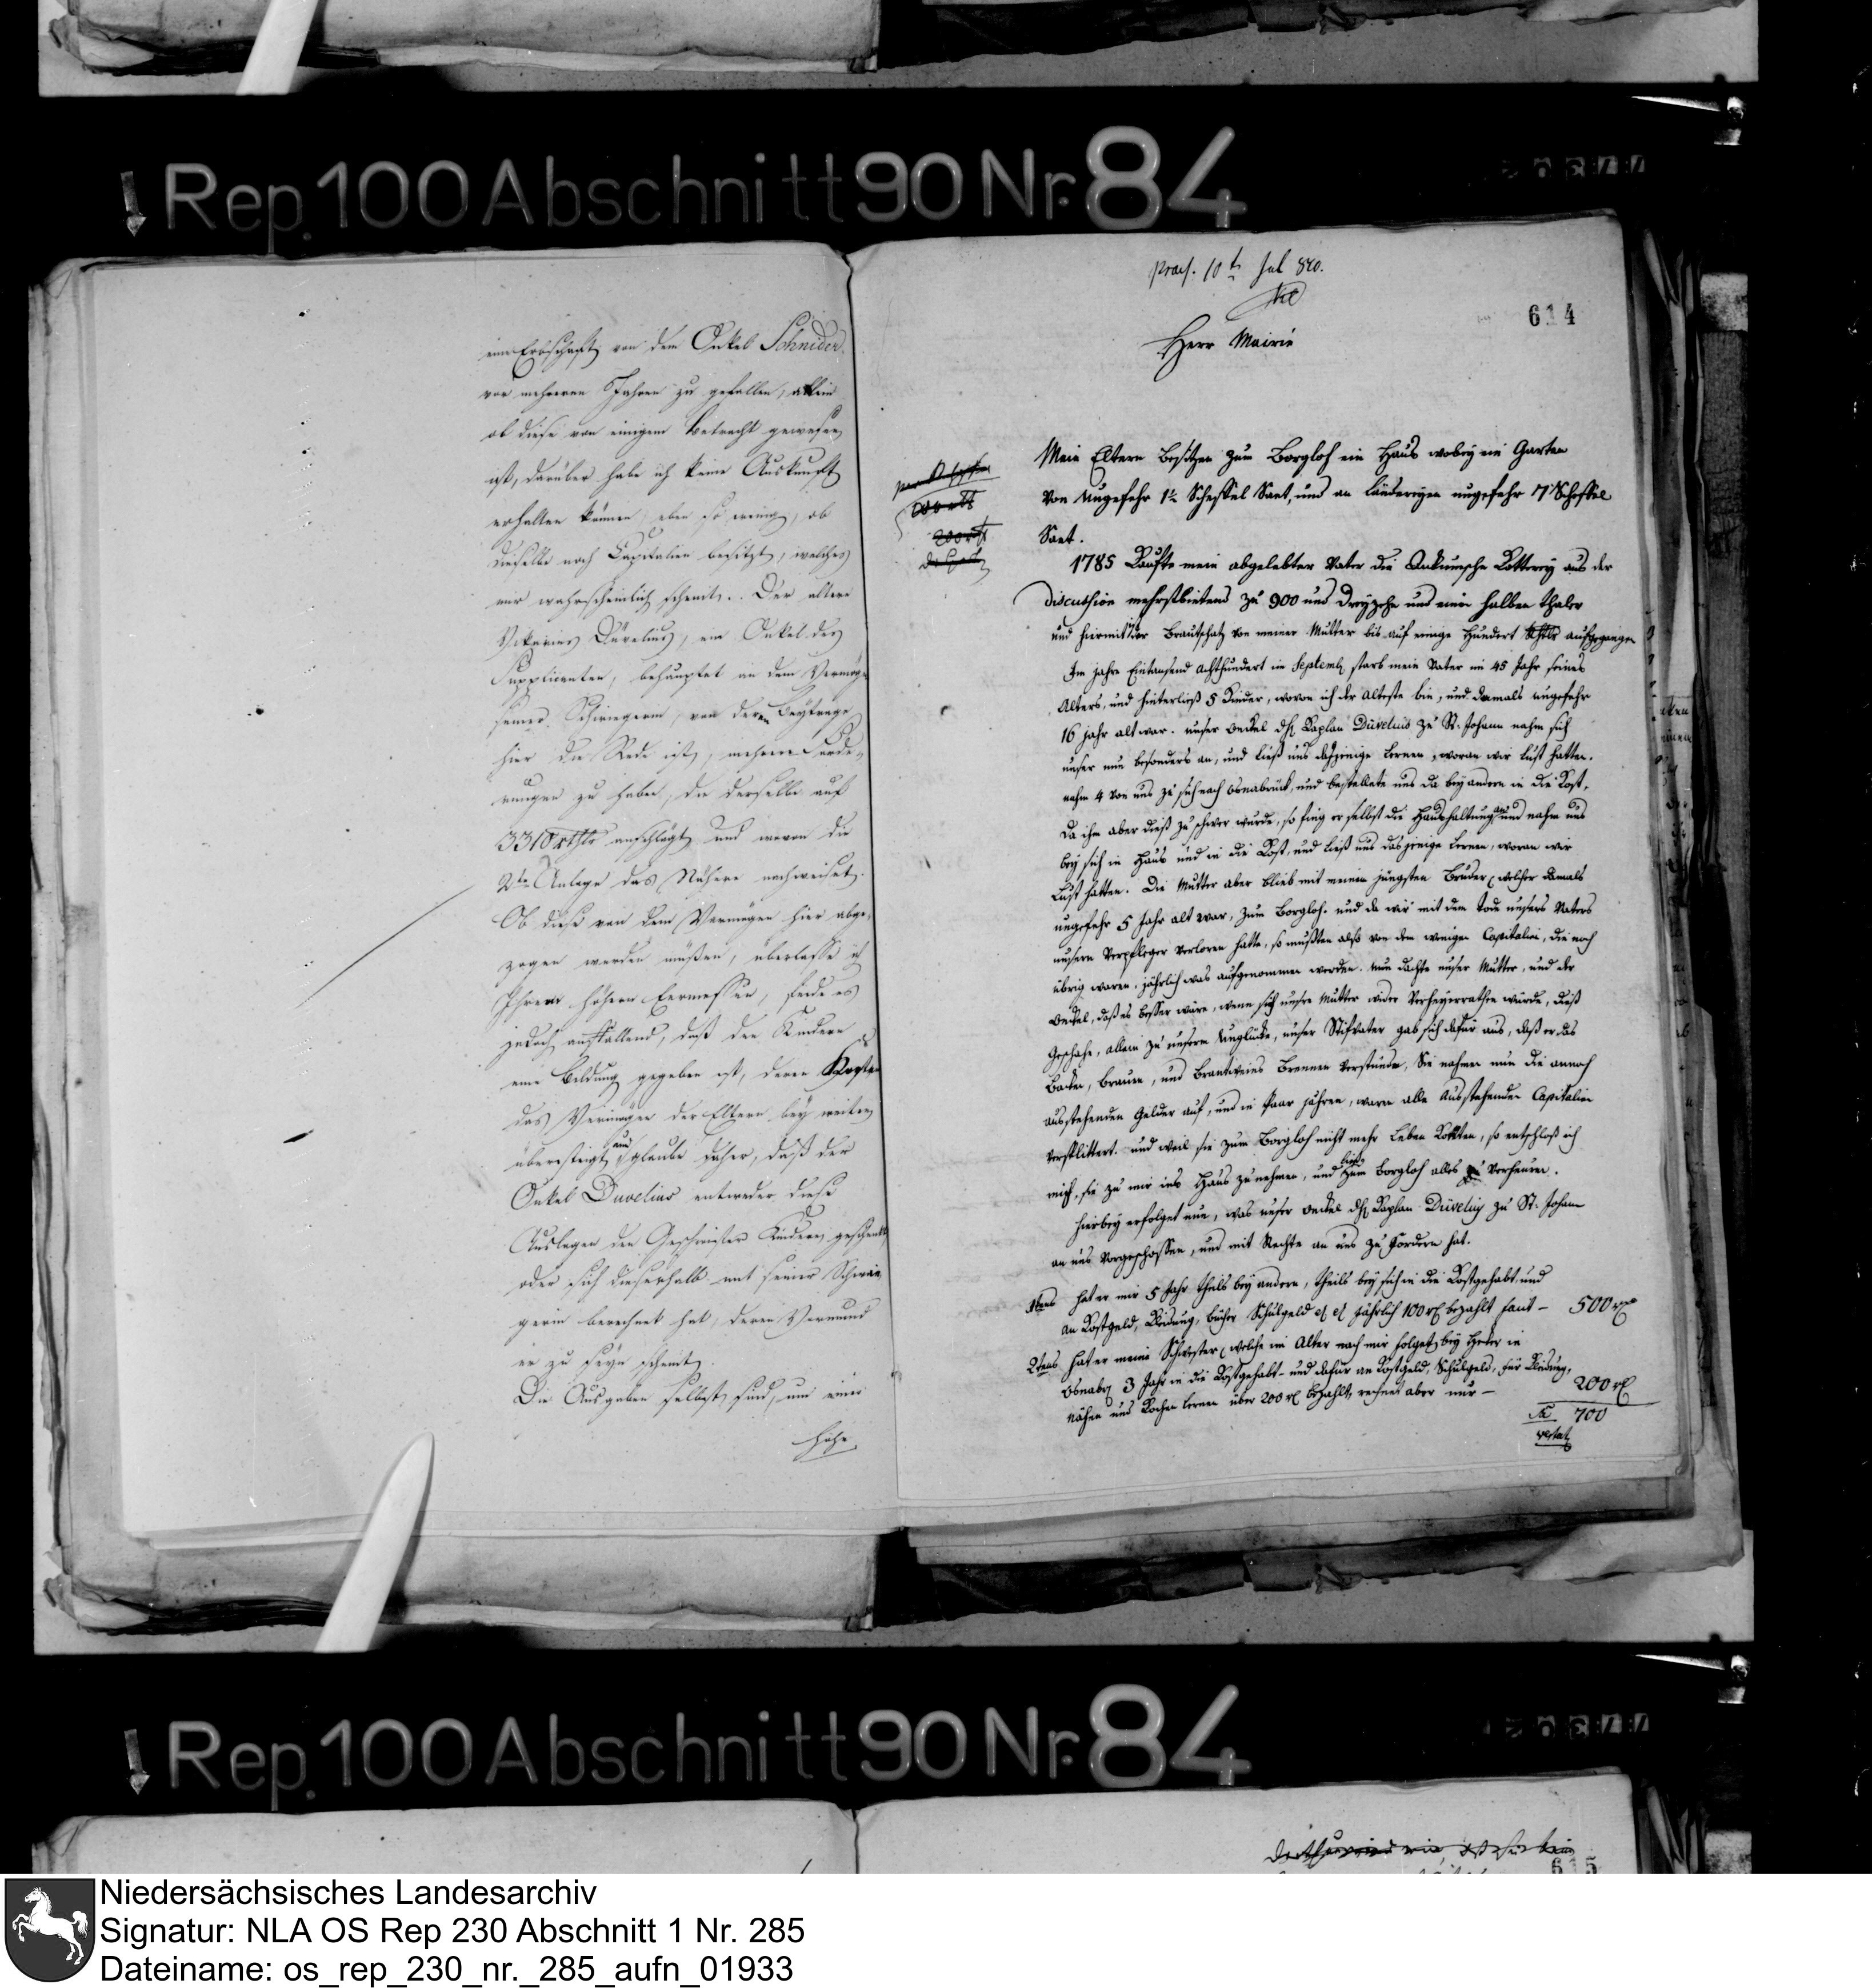 Rep. 100 Abschnitt 90 Nr. 84
eine Erbschaft von dem Onkel Schnider
vor mehreren Jahren zu gefallen, allein
ob diese von einigem Betracht gewesen
ist, darüber habe ich keine Auskunft
erhalten können, eben so wenig, ob
dieselbe noch Capitalien besitzt, welches
mir wahrscheinlich scheint. Der altere
Vikarius Düvelius, ein Onkel des
Supplicanten, behauptet an dem Vermögen
seiner Schwiegerin, von deren Beytrage
hier die Rede ist, mehrere Forde-
rungen zu haben, die derselbe auf
3310 rthlr anschlägt und wovon die
2te Anlage das Nähere nachweiset.
Ob dieß von dem Vermögen hier abge-
zogen werden müßen, überlasse ich
Ihrem höhern Ermessen, finde es
jedoch auffallend, daß den Kindern
eine Bildung gegeben ist, deren Kosten
das Vermögen der Eltern bey weiten
übersteigt, und glaube daher, daß der
Onkel Duvelius entweder diese
Auslagen den Geschwister Kindern geschenkt
oder sich dieserhalb mit seiner Schwie-
gerin berechnet hat, deren Vormund
er zu seyn scheint.
Die Ausgaben selbst sind, um einer
höhe
praes. 10t Jul 810.
614
Herr Mairie
Mein Eltern besitzen zum Borgloh ein Haus wobey ein Garten
von ungefehr 1½ Scheffel Saat, und an länderiyen ungefehr 7 Scheffel
Saat.
1785 Kaufte mein abgelebter Vater die Ankumsche Kotterey aus der
discussion mehrstbietend zu 900 und dreyzehn und einen halben thaler
und hiermit ist der Brautschatz von meiner Mutter bis auf einige Hundert thlr aufgegangen
Im jahre Eintausend achthundert im Septemb. starb mein Vater im 45 Jahr seines
Alters, und hinterließ 5 Kinder, wovon ich der Alteste bin, und damals ungefehr
16 jahr alt war. unser Onckel dh. Kaplan Düvelius zu St. Johann nahm sich
unser nun besonders an, und ließ uns dasjenige lernen, woran wir lust hatten.
nahm 4 von uns zu sich nach Osnabrück, und bestellete uns da bey andern in die Kost,
da ihm aber dieß zu schwer wurde, so fing er selbst die Haushaltung an und nahm uns
bey sich in Haus und in die Kost, und ließ uns dasjenige lernen, woran wir
Lust hatten. Die Mutter aber blieb mit meinem jüngsten Bruder, welcher damals
ungefehr 5 Jahr alt war, zum Borgloh. und da wir mit dem tode unsers Vaters
unsern Verpfleger verloren hatte, so mußten also von den wenigen Capitalien, die noch
übrig waren, jährlich was aufgenommen werden. nun dachte unser Mutter, und der
Onckel, daß es besser wäre, wenn sich unsre Mutter wider verheyerrathen würde, dieß
Geschahe, allein zu unserm Unglücke, unser Stifvater gab sich dafür aus, daß er das
Backen, Brauen, und Brantweins Brennen verstünde, Sie nahmen nun die annoch
ausstehenden Gelder auf, und in Paar jahren, waren alle Ausstehenden Capitalien
versplittert. und weil sie zum Borgloh nicht mehr Leben Konten, so entschloß ich
mich, sie zu mir ins Haus zu nehmen, und ließ zum Borgloh alles verheuren.
Hierbey erfolget nun, was unser Onckel dh. Kaplan Düvelius zu St. Johann
an uns Vorgeschossen, und mit Rechte an uns zu fordern hat.
1tens hat er mir 5 Jahr theils bey andern, theils bey sich in die Kost gehabt und
an Kostgeld, Kleidung, bücher Schulgeld etc etc jährlich 100 rt bezahlt facit – 500 rt
2tens hat er meine Schwester, welche im Alter nach mir folget, bey Heker in
Osnabr. 3 Jahr in die Kost gehabt – und dafür an Kostgeld, Schulgeld, für Kleidung,
nähen und Kochen lernen über 200 rt bezahlt, rechnet aber nur – 200 rt
700
vertat.
Rep. 100 Abschnitt 90 Nr. 84
615
Niedersächsisches Landesarchiv
Signatur: NLA OS Rep 230 Abschnitt 1 Nr. 285
Dateiname: os_rep_230_nr._285_aufn_01933